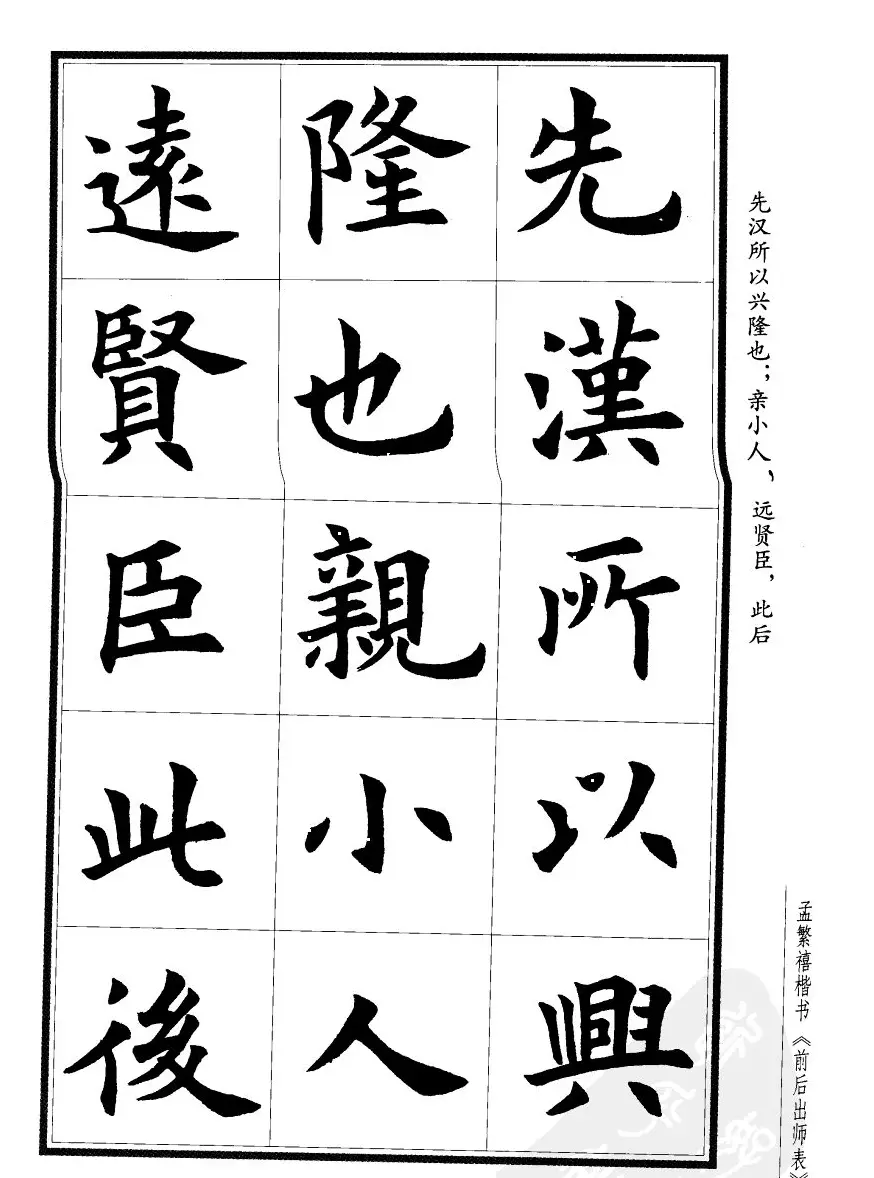 先漢所以興
隆也親小人
遠賢臣此後
先汉所以兴隆也；亲小人，远贤臣，此后
孟繁禧楷书《前后出师表》